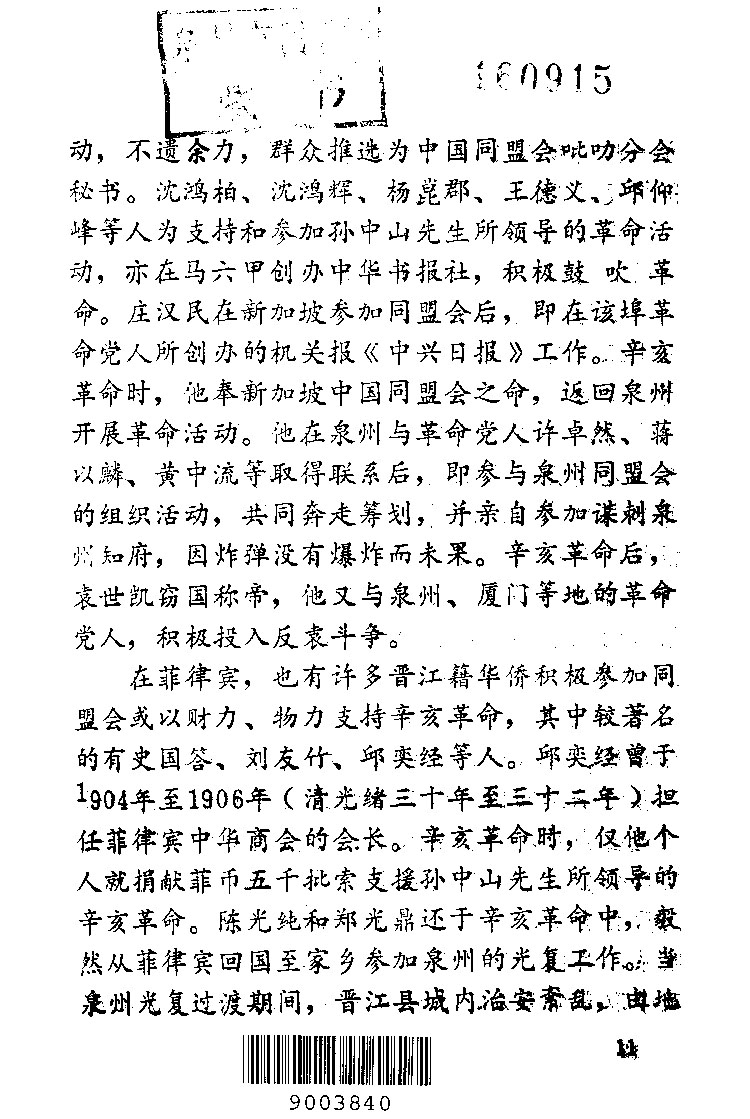 160915
动，不遗余力，群众推选为中国同盟会吡叻分会
秘书。沈鸿柏、沈鸿辉、杨崑郡、王德义、邱仰
峰等人为支持和参加孙中山先生所领导的革命活
动，亦在马六甲创办中华书报社，积极鼓 吹 革
命。庄汉民在新加坡参加同盟会后，即在该埠革
命党人所创办的机关报《中兴日报》工作。辛亥
革命时，他奉新加坡中国同盟会之命，返回泉州
开展革命活动。他在泉州与革命党人许卓然、蒋
以麟、黄中流等取得联系后，即参与泉州同盟会
的组织活动，共同奔走筹划，并亲自参加谋刺泉
州知府，因炸弹没有爆炸而未果。辛亥革命后，
袁世凯窃国称帝，他又与泉州、厦门等地的革命
党人，积极投入反袁斗争。
在菲律宾，也有许多晋江籍华侨积极参加同
盟会或以财力、物力支持辛亥革命，其中较著名
的有史国答、刘友竹、邱奕经等人。邱奕经曾于
1904年至1906年（清光绪三十年至三十二年）担
任菲律宾中华商会的会长。辛亥革命时，仅他个
人就捐献菲币五千批索支援孙中山先生所领导的
辛亥革命。陈光纯和郑光鼎还于辛亥革命中，毅
然从菲律宾回国至家乡参加泉州的光复工作。当
泉州光复过渡期间，晋江县城内治安紊乱，由地
11
9003840